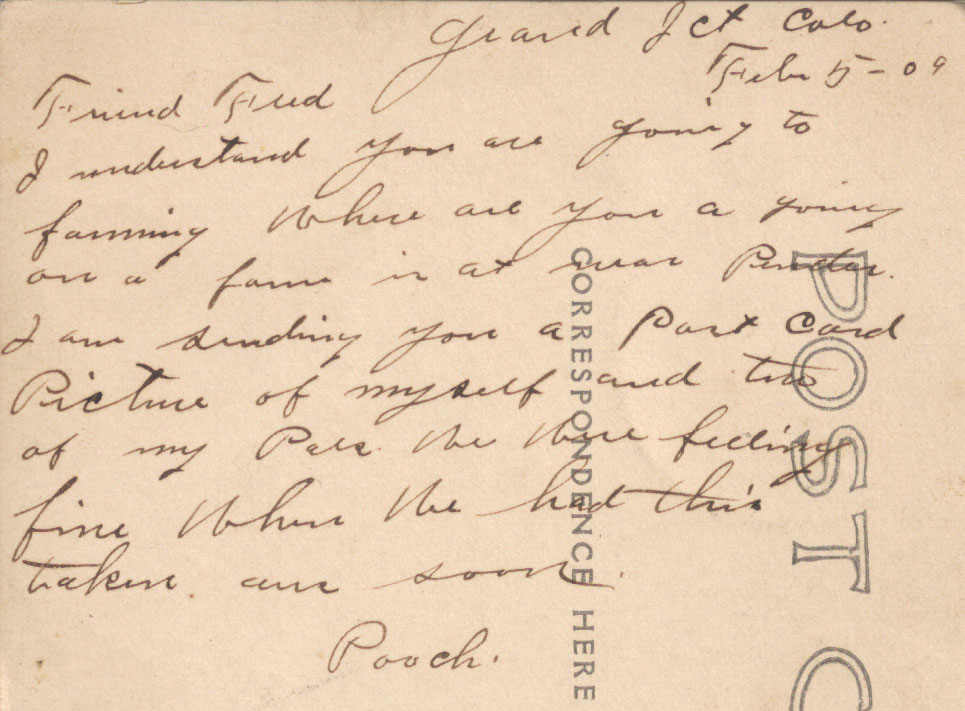 Grand Jct Colo.
Feb 5-09
Friend Fred
I understand you are going to
farming Where are you a going
on a farm is at near Pender.
I am sending you a Post Card
Picture of myself and two
of my Pals. We Were feeling
fine When We had this
taken. ans soon.
Pooch.
CORRESPONDENCE HERE
POST C